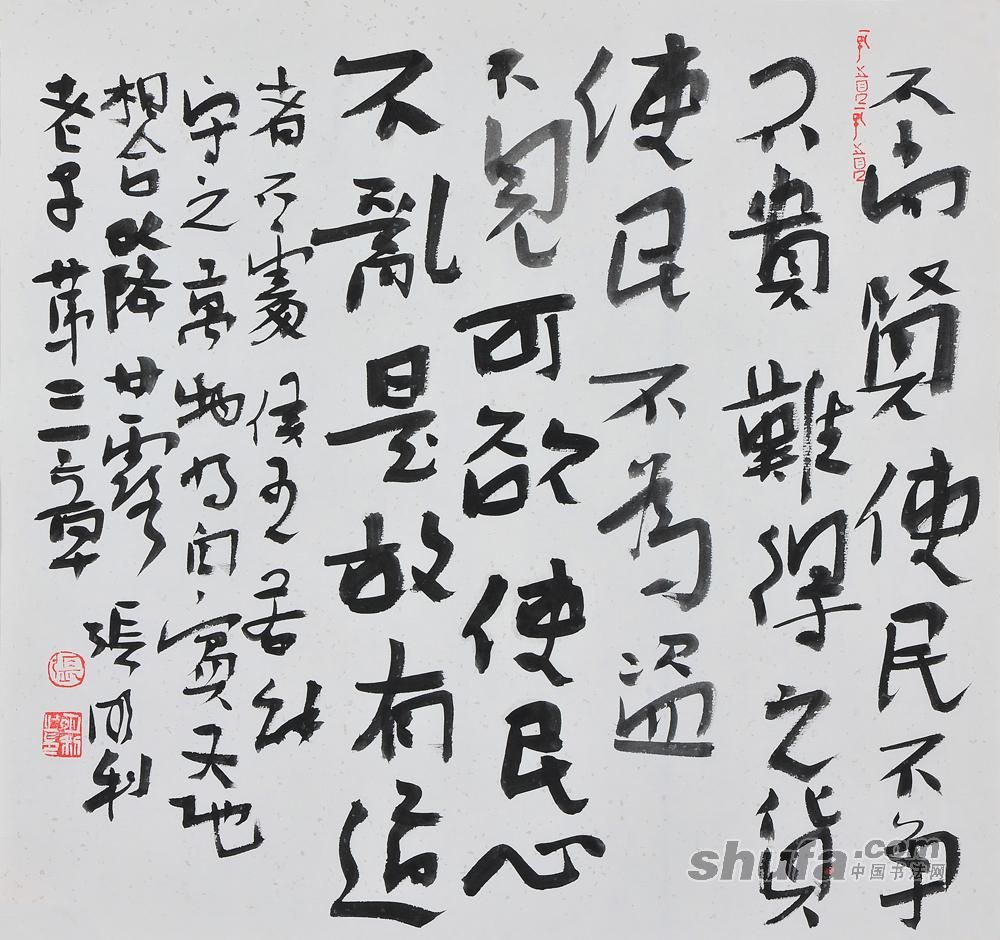 不尚賢使民不爭
不貴難得之貨
使民不為盜
不見可欲使民心
不亂是故有道
者不處侯王若能
守之萬物將自賓天地
相合以降甘露
老子第三章
張利
張
shufa.com
中国书法网